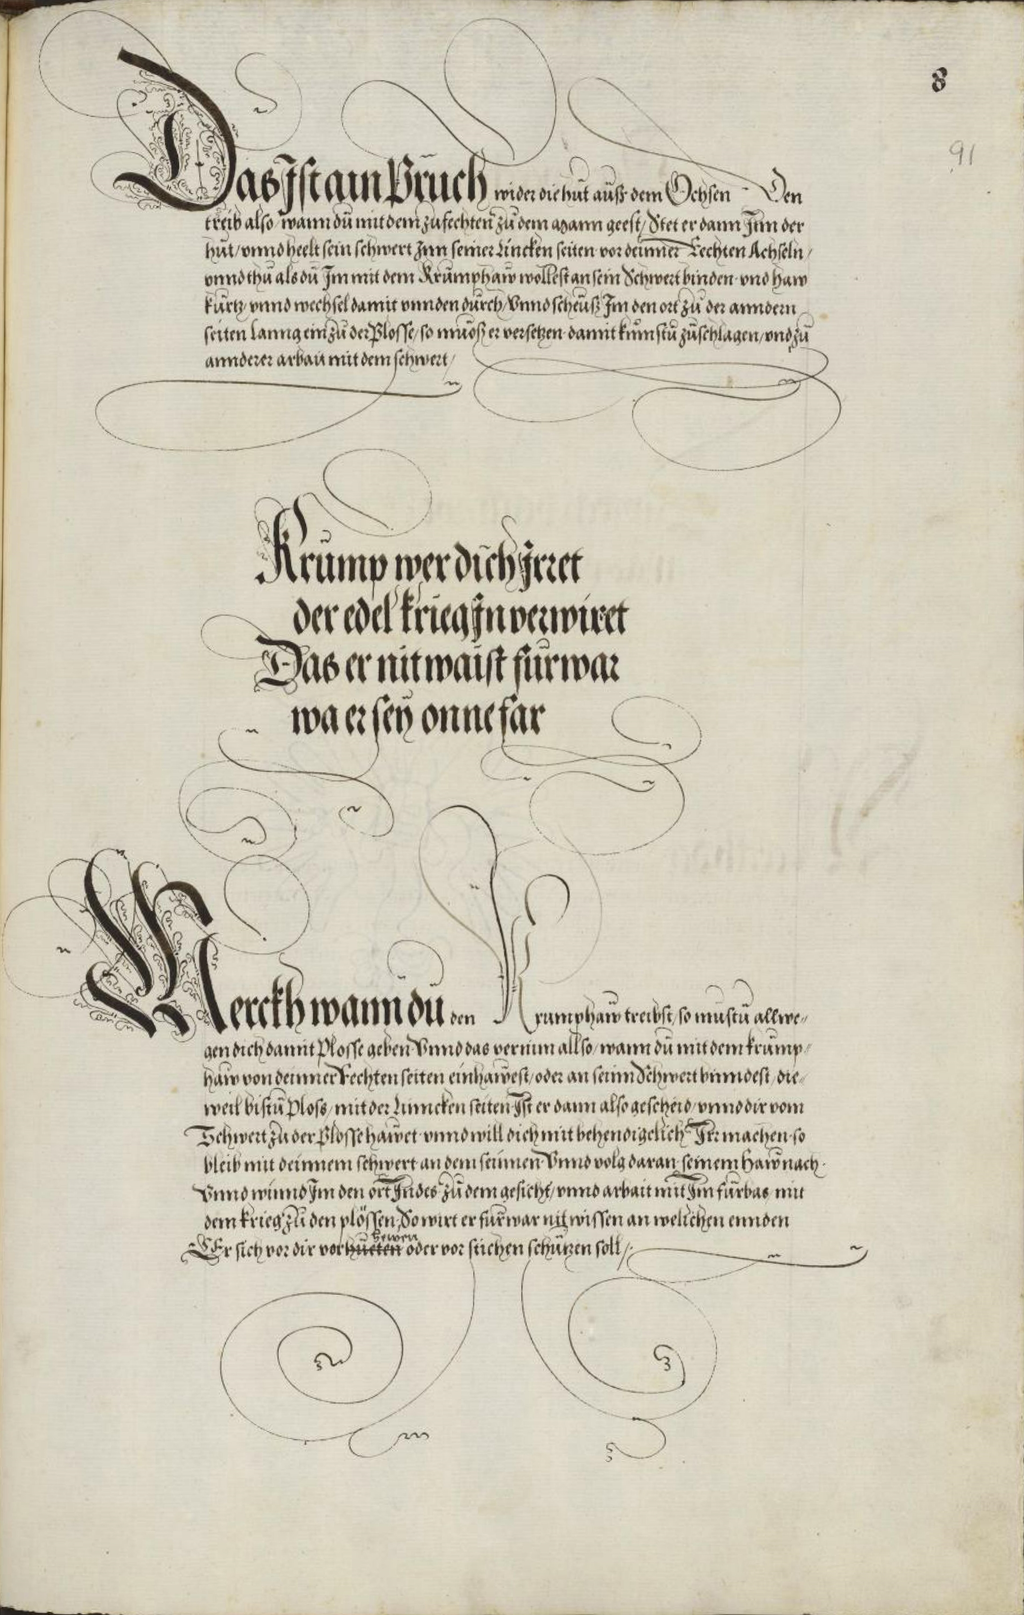 8
91
Das Ist ain Bruch wider die hut auß dem Ochsen Den
treib also / wann du mit dem zufechten zu dem mann geest / Stet er dann Inn der
hut / vnnd heelt sein schwert Inn seiner Lincken seiten vor deinner Rechten Achseln /
vnnd thu als du Im mit dem Krumphaw wollest an sein Schwert binden vnd haw
kurtz / vnnd wechsel damit vnnden durch / Vnnd scheuß Im den ort zu der anndern
seiten lanng ein zu der Plosse / so muoß er versetzen damit kumstu zu schlagen / vnd zu
annderer arbait mit dem schwert /
Krump wer dich Irret
der edel krieg In verwiret
Das er nit waist furwar
wa er sey onne far
Merckh wann du den Krumphaw treibst / so mustu allwe-
gen dich damit Plosse geben Vnnd das vernim allso / wann du mit dem krump-
haw von deinner Rechten seiten einhawest / oder an seinn Schwert binndest / die-
weil bistu Ploss / mit der Linncken seiten Ist er dann also gescheid / vnnd dir vom
Schwert zu der Plosse hawet vnnd will dich mit behendigelich Irr machen so
bleib mit deinnem schwert an dem seinnen Vnnd volg daran seinem Haw nach
Vnnd winnd Im den ort Indes zu dem gesicht / vnnd arbait mit Im furbas mit
dem krieg zu den plössen / So wirt er furwar nit wissen an welichen ennden
hewen
Er sich vor dir vor hueten oder vor stichen schützen soll /